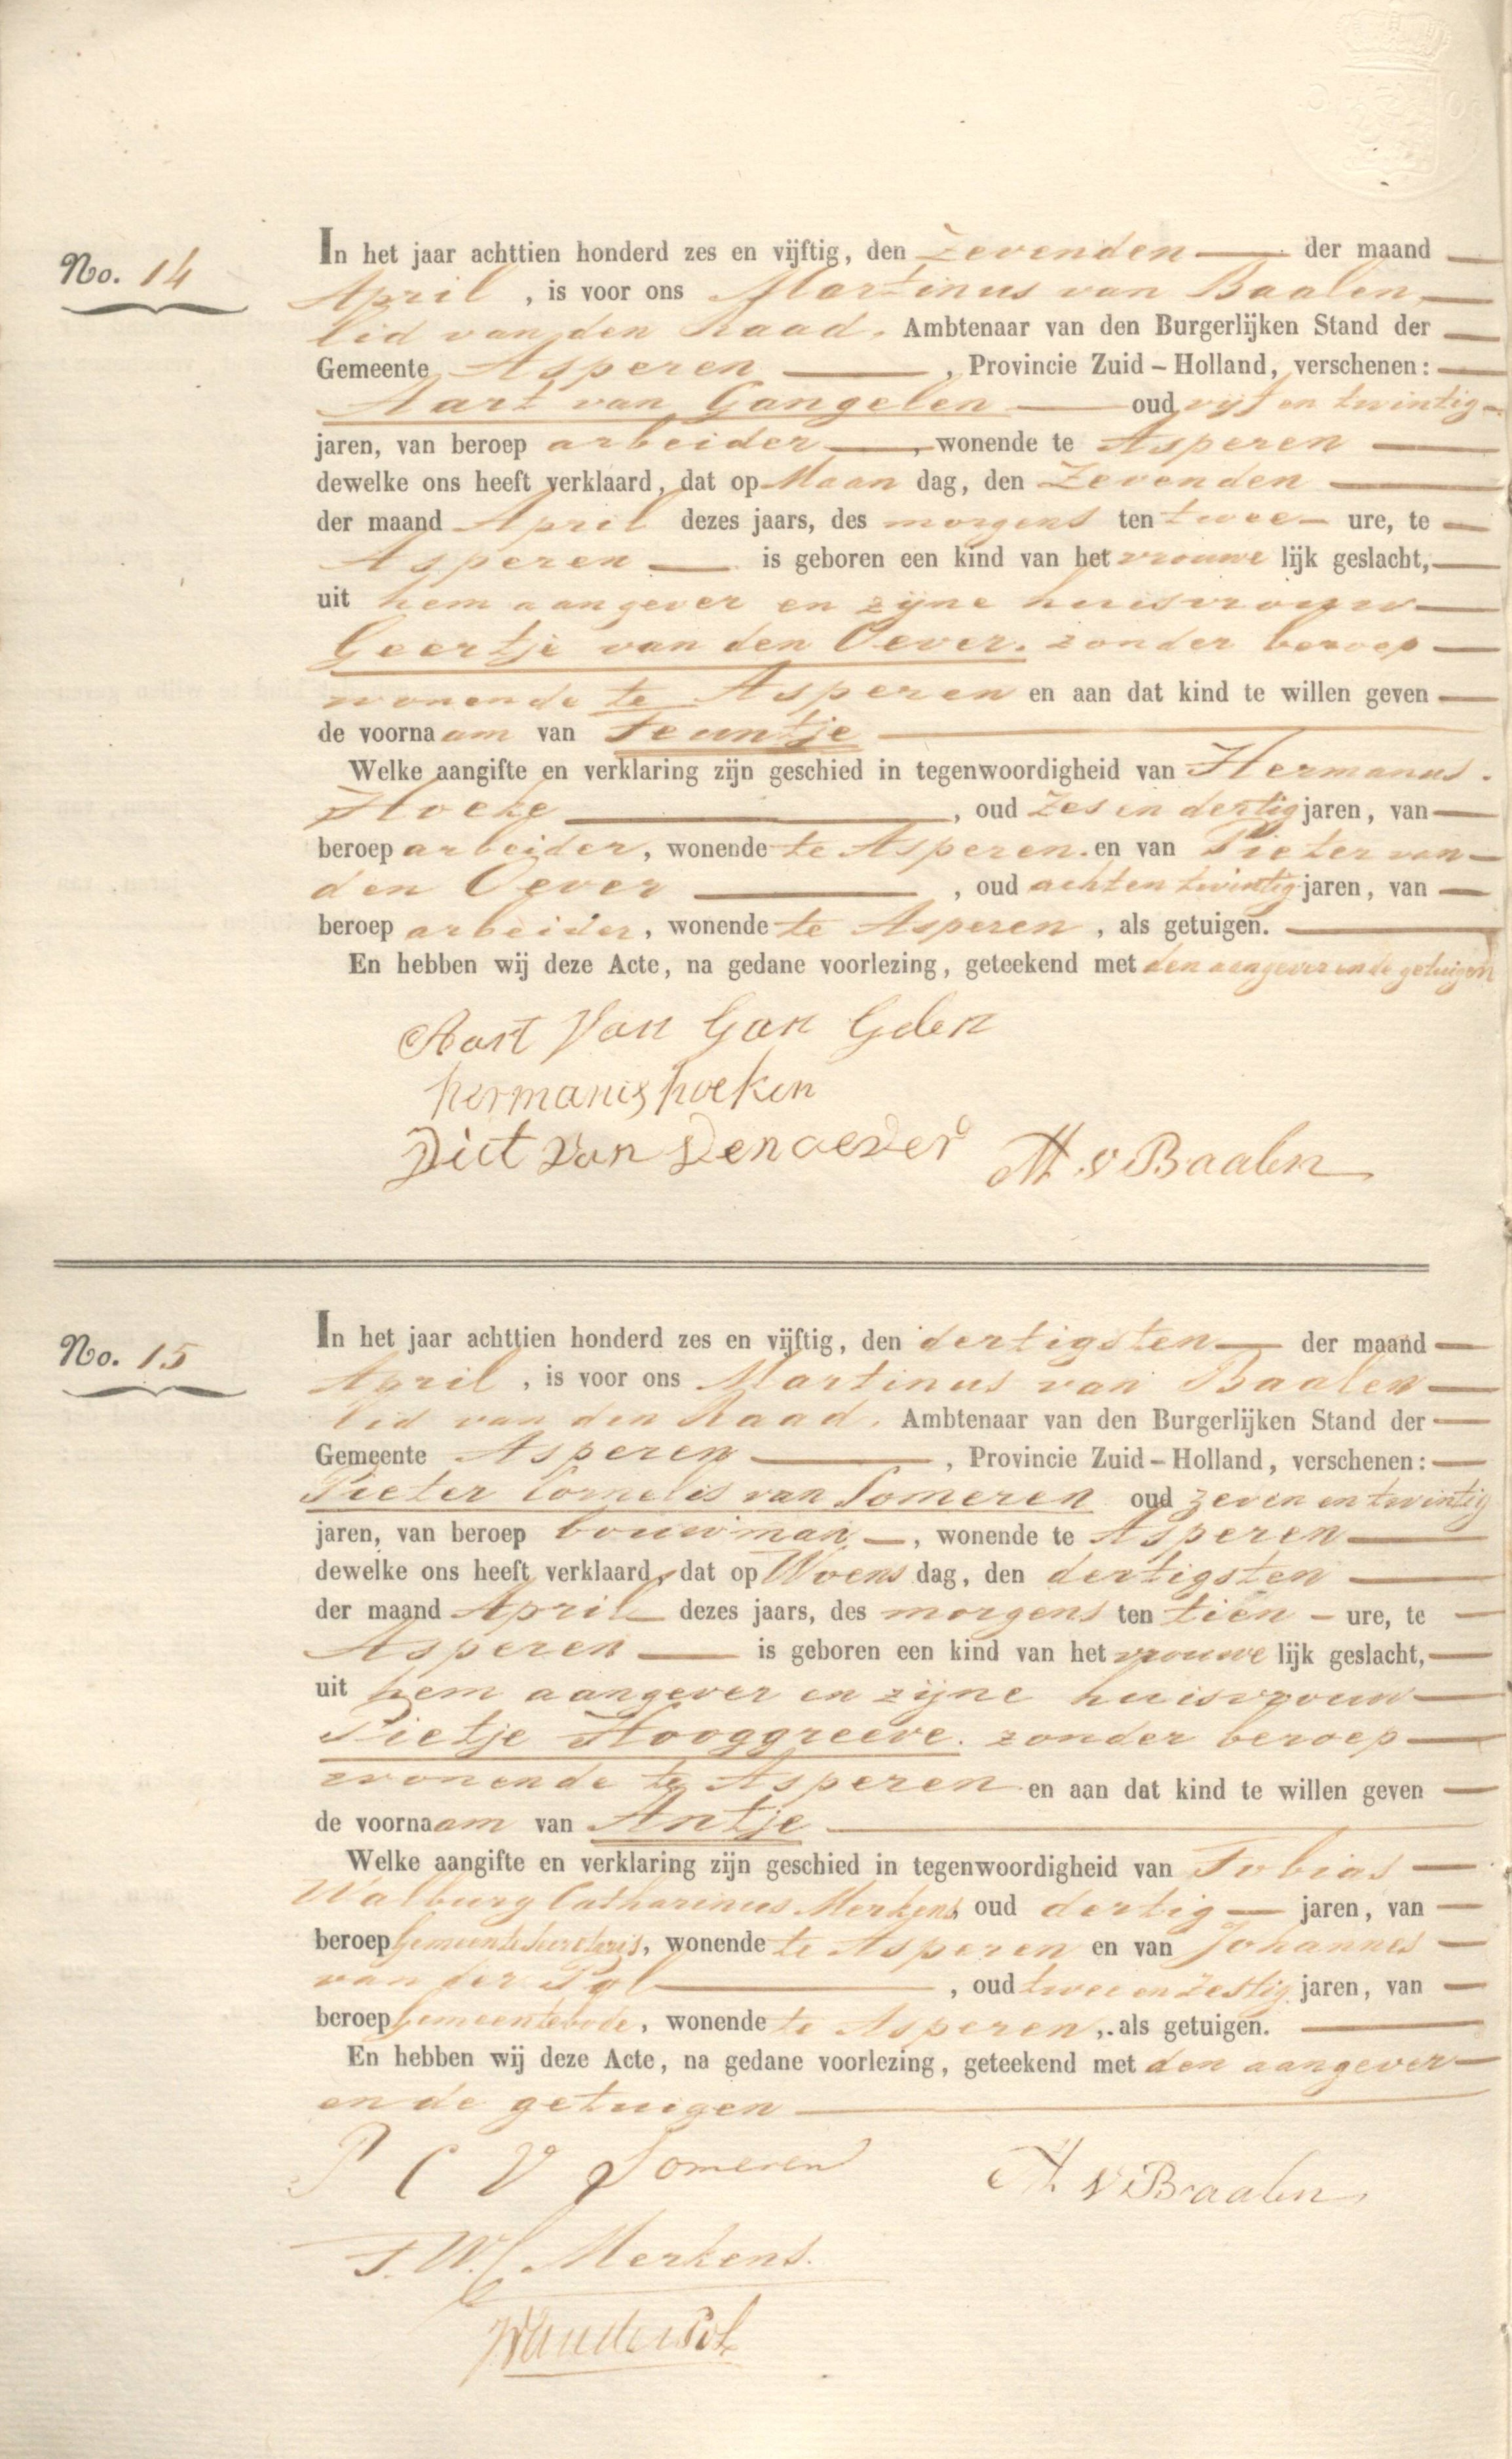 No. 14
In het jaar achttien honderd zes en vijftig, den zevenden der maand
April, is voor ons Martinus van Baalen,
lid van den Raad, Ambtenaar van den Burgerlijken Stand der
Gemeente Asperen, Provincie Zuid-Holland, verschenen:
Aart van Gangelen oud vijf en twintig
jaren, van beroep arbeider, wonende te Asperen
dewelke ons heeft verklaard, dat op Maan dag, den Zevenden
der maand April dezes jaars, des morgens ten twee ure, te
Asperen is geboren een kind van het vrouwe lijk geslacht,
uit hem aangever en zijne huisvrouw
Geertje van den Oever. zonder beroep
wonende te Asperen en aan dat kind te willen geven
de voornaam van Teuntje
Welke aangifte en verklaring zijn geschied in tegenwoordigheid van Hermanus
Hoeke, oud zes en dertig jaren, van
beroep arbeider, wonende te Asperen. en van Pieter van
den Oever, oud acht en twintig jaren, van
beroep arbeider, wonende te Asperen, als getuigen.
En hebben wij deze Acte, na gedane voorlezing, geteekend met den aangever en de getuigen
Aart Van Gan Gelen
hermanis hoeken
Piet van Den oever
M v Baalen
No. 15
In het jaar achttien honderd zes en vijftig, den dertigsten der maand
April, is voor ons Martinus van Baalen
lid van den Raad, Ambtenaar van den Burgerlijken Stand der
Gemeente Asperen, Provincie Zuid-Holland, verschenen:
Pieter Cornelis van Someren oud zeven en twintig
jaren, van beroep bouwman, wonende te Asperen
dewelke ons heeft verklaard, dat op Woens dag, den dertigsten
der maand April dezes jaars, des morgens ten tien ure, te
Asperen is geboren een kind van het vrouwe lijk geslacht,
uit hem aangever en zijne huisvrouw
Pietje Hooggreeve. zonder beroep
wonende te Asperen en aan dat kind te willen geven
de voornaam van Antje
Welke aangifte en verklaring zijn geschied in tegenwoordigheid van Tobias
Walburg Catharinus Merkens oud dertig jaren, van
beroep Gemeente Secretaris, wonende te Asperen en van Johannes
van der Pol, oud twee en zestig jaren, van
beroep Gemeentebode, wonende te Asperen, als getuigen.
En hebben wij deze Acte, na gedane voorlezing, geteekend met den aangever
en de getuigen
P C V Someren
M v Baalen
T. W. C Merkens.
JVanderPol